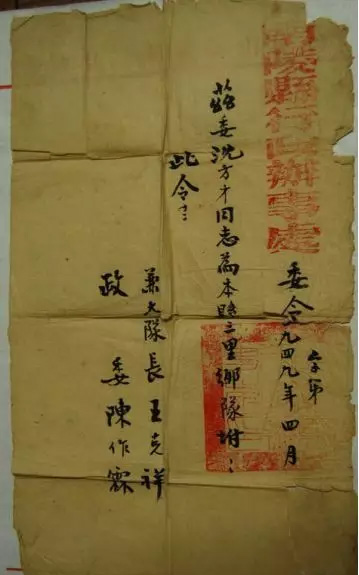 銅陵縣行政辦事處
字第
委令一九四九年四月
茲委沈方才同志為本縣三里鄉隊附
此令
兼大隊長王克祥
政委陳作霖